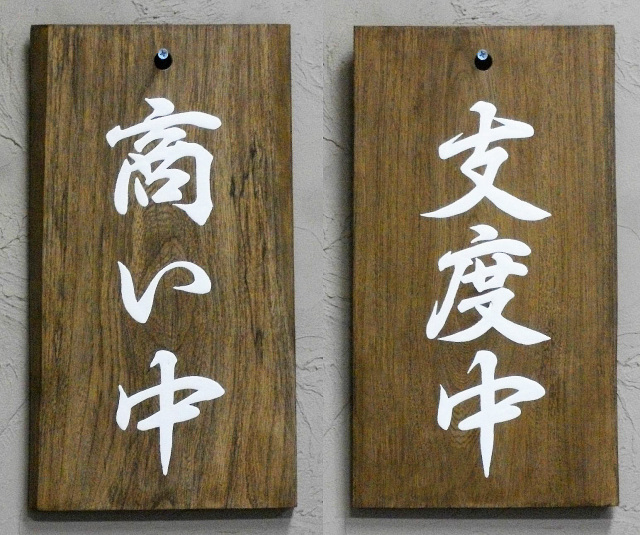 商い中
支度中